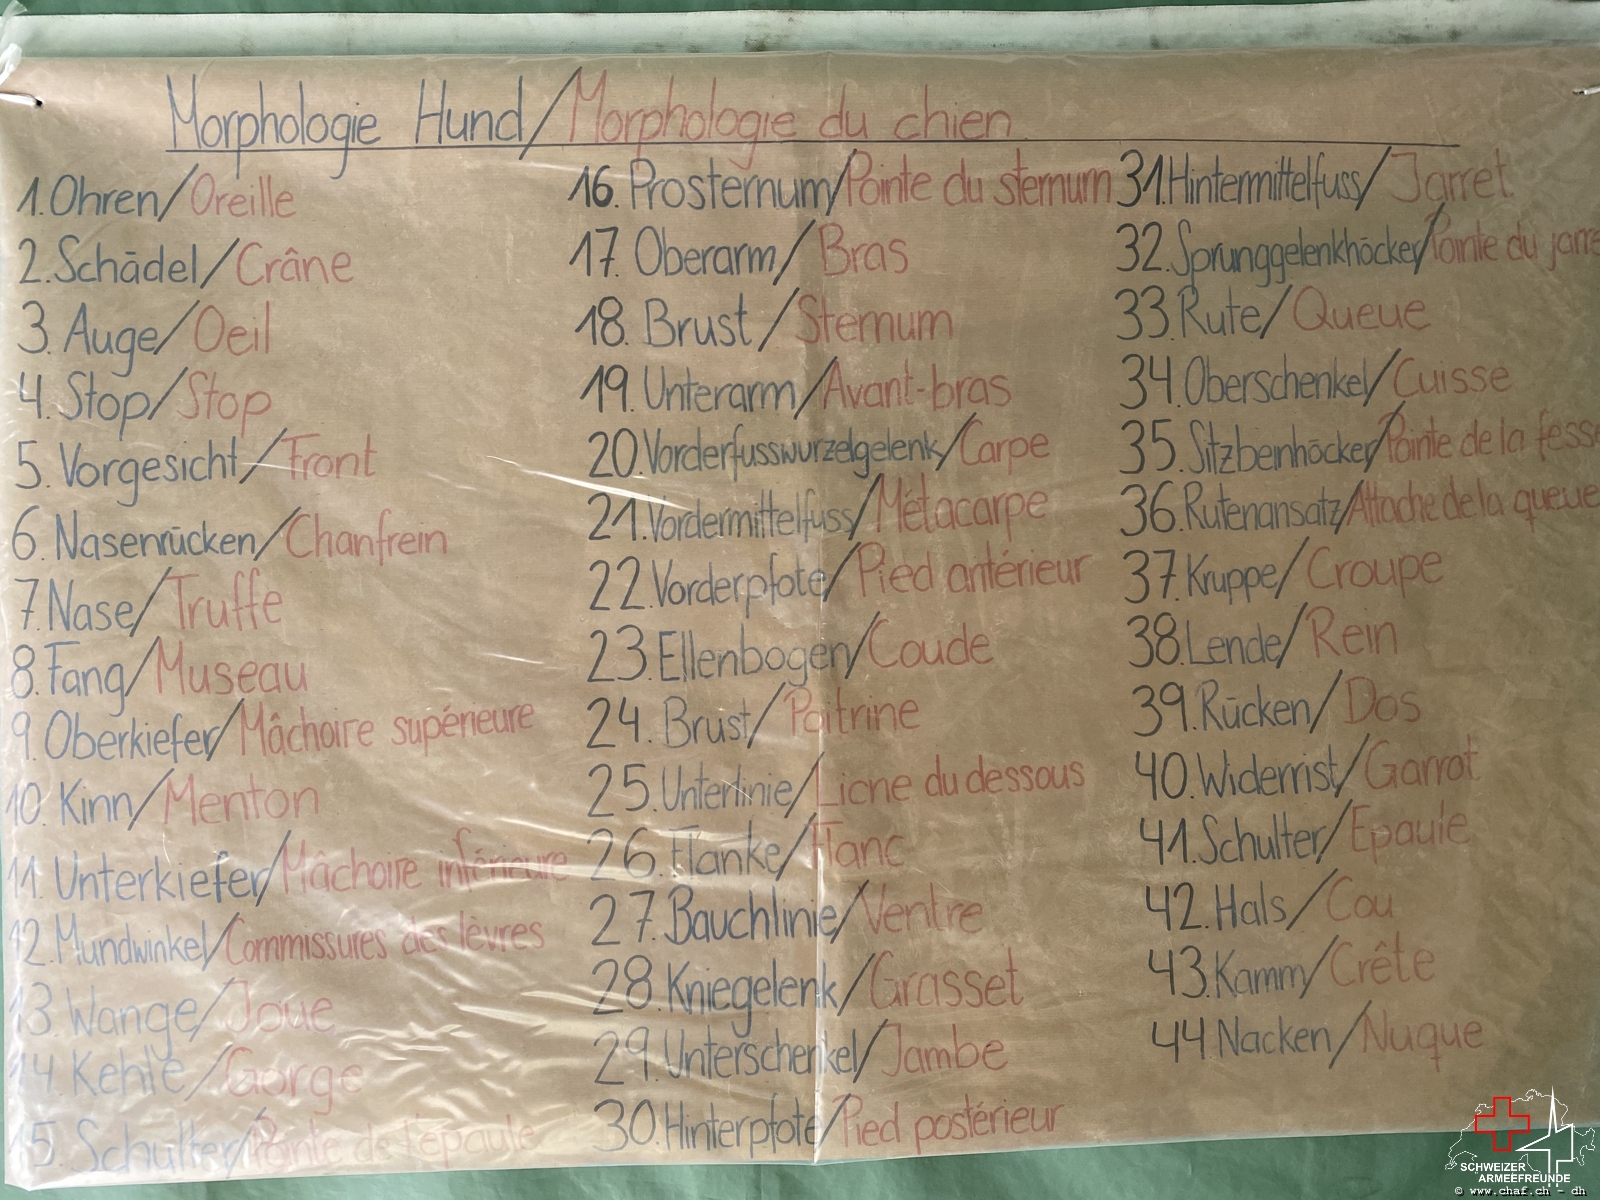 Morphologie Hund/Morphologie du chien
1. Ohren/Oreille
2. Schädel/Crâne
3. Auge/Oeil
4. Stop/Stop
5. Vorgesicht/Front
6. Nasenrücken/Chanfrein
7. Nase/Truffe
8. Fang/Museau
9. Oberkiefer/Mâchoire supérieure
10. Kinn/Menton
11. Unterkiefer/Mâchoire inférieure
12. Mundwinkel/Commissures des lèvres
13. Wange/Joue
14. Kehle/Gorge
15. Schulter/Pointe de l'épaule
16. Prosternum/Pointe du sternum
17. Oberarm/Bras
18. Brust/Sternum
19. Unterarm/Avant-bras
20. Vorderfusswurzelgelenk/Carpe
21. Vordermittelfuss/Métacarpe
22. Vorderpfote/Pied antérieur
23. Ellenbogen/Coude
24. Brust/Poitrine
25. Unterlinie/Licne du dessous
26. Flanke/Flanc
27. Bauchlinie/Ventre
28. Kniegelenk/Grasset
29. Unterschenkel/Jambe
30. Hinterpfote/Pied postérieur
31. Hintermittelfuss/Jarret
32. Sprunggelenkhöcker/Pointe du jarre
33. Rute/Queue
34. Oberschenkel/Cuisse
35. Sitzbeinhöcker/Pointe de la fesse
36. Rutenansatz/Attache de la queue
37. Kruppe/Croupe
38. Lende/Rein
39. Rücken/Dos
40. Widerrist/Garrot
41. Schulter/Epaule
42. Hals/Cou
43. Kamm/Crête
44 Nacken/Nuque
SCHWEIZER
ARMEEFREUNDE
© www.chaf.ch - dh